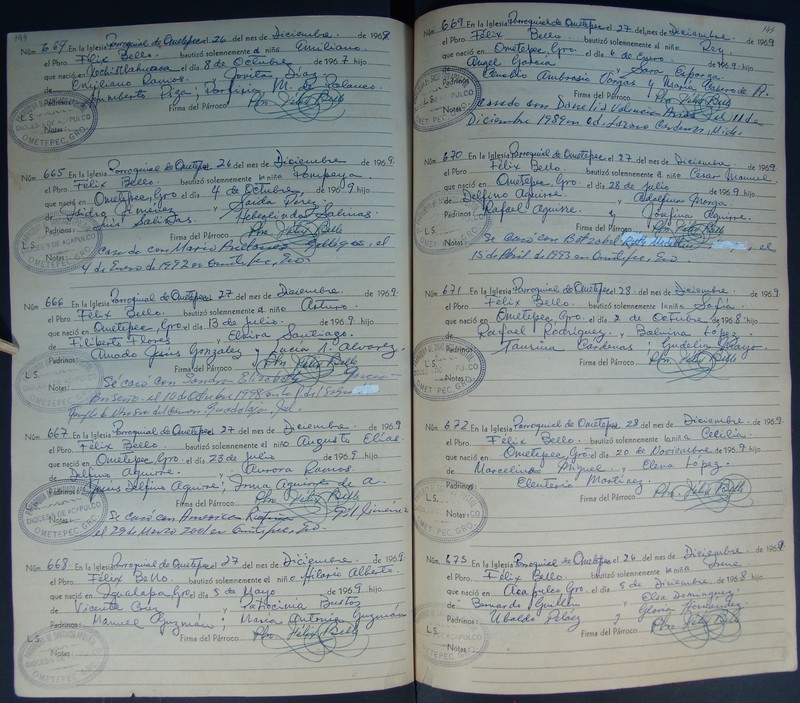 144
Núm. 664 En la Iglesia Parroquial de Ometepec 26 del mes de Diciembre de 1969
el Pbro. Félix Bello. bautizó solemnemente al niño Emiliano.
que nació en Xochistlahuaca el día 8 de Octubre de 1967 hijo
de Emiliano Ramos y Jovita Díaz
Padrinos: Humberto Piza; Porfiria M. De Polanco
L. S. Firma del Párroco Pbro. Félix Bello
Notas:
OMETEPEC, GRO.
Núm. 665 En la Iglesia Parroquial de Ometepec 26 del mes de Diciembre de 1969.
el Pbro. Félix Bello. bautizó solemnemente la niña Pompeya.
que nació en Ometepec, Gro el día 4 de Octubre de 1969 hijo
de Isidro Jiménez y Saida Perez
Padrinos: Luis Salinas, Heberlinda Salinas
Firma del Párroco Pbro. Félix Bello
L. S.
Notas: casada con Mario Gallegos, el
4 de Enero de 1992 en Ometepec, Gro.
Núm. 666 En la Iglesia Parroquial de Ometepec 27 del mes de Diciembre. de 1969.
el Pbro. Félix Bello. bautizó solemnemente al niño Arturo.
que nació en Ometepec, Gro el día 13 de julio. de 1969 hijo
de Filiberto Flores y Elvira Santiago.
Padrinos: Amado Jesus Gonzalez y Lucia A. Alvarez.
L. S. Firma del Párroco Pbro. Félix Bello
Notas: Se casó con Sandra Elizabeth Garcia
el 10 de Octubre 1998
Guadalajara, Jal.
Núm. 667 En la Iglesia Parroquial de Ometepec 27 del mes de Diciembre. de 1969
el Pbro. Félix Bello. bautizó solemnemente al niño Augusto Elías.
que nació en Ometepec, Gro el día 23 de julio de 1969 hijo
de Delfino Aguirre. y Aurora Ramos.
Padrinos: Jesus Delfino Aguirre; Irma Aguirre de A.
Firma del Párroco Pbro. Félix Bello
L. S.
Notas: Se casó con America Gil Jiménez
el 29 de Marzo 2001 en Ometepec, Gro.
Núm. 668 En la Iglesia Parroquial de Ometepec 27 del mes de Diciembre. de 1969.
el Pbro. Félix Bello. bautizó solemnemente al niño Hilario Alberto.
que nació en Igualapa, Gro el día 5 de Mayo de 1969 hijo
de Vicente Cruz y Patrocinia Bustos
Padrinos: Manuel Guzmán; Maria Antonia Guzmán
L. S. Firma del Párroco Pbro. Félix Bello
Notas:
145
Núm. 669 En la Iglesia Parroquial de Ometepec 27 del mes de Diciembre de 1969
el Pbro. Félix Bello bautizó solemnemente al niño Rey.
que nació en Ometepec, Gro. el día 6 de Enero de 1969 hijo
de Angel García y Sara Esparza.
Padrinos: Camilo Ambrosio Vargas y Maria de A.
L. S. Firma del Párroco Pbro. Félix Bello
Notas: Casado con Valencia Arias el 11 de
Diciembre 1989 en Cd. Lázaro Cárdenas, Mich.
Núm. 670 En la Iglesia Parroquial de Ometepec 27 del mes de Diciembre de 1969
el Pbro. Félix Bello. bautizó solemnemente al niño César Manuel.
que nació en Ometepec, Gro. el día 28 de julio de 1969 hijo
de Delfino Aguirre y Adelfina Monga.
Padrinos: Rafael Aguirre y Josefina Aguirre.
L. S. Firma del Párroco Pbro. Félix Bello
Notas: Se casó con el
15 de Abril de 1993 en Ometepec, Gro.
Núm. 671 En la Iglesia Parroquial de Ometepec 28. del mes de Diciembre. de 1969
el Pbro. Félix Bello. bautizó solemnemente la niña Sofía.
que nació en Ometepec, Gro. el día 2 de Octubre de 1968. hijo
de Rafael Rodríguez. y Balbina Lopez
Padrinos: Taurina Cardenas; Gudelia
L. S. Firma del Párroco Pbro. Félix Bello
Notas:
Núm. 672 En la Iglesia Parroquial de Ometepec 28 del mes de Diciembre de 1969
el Pbro. Félix Bello. bautizó solemnemente la niña Cecilia
que nació en Ometepec, Gro. el día 20 de Noviembre de 1969 hijo
de Marcelino Miguel y Elena Lopez.
Padrinos: Elenteria Martínez.
L. S. Firma del Párroco Pbro. Félix Bello
Notas:
Núm. 673 En la Iglesia Parroquial de Ometepec 26 del mes de Diciembre. de 1969
el Pbro. Félix Bello. bautizó solemnemente la niña Irene
que nació en Acapulco Gro. el día 5 de Diciembre. de 1968 hijo
de Bernardo Guillén y Elsa Dominguez.
Padrinos: Ubaldo Peláez y Gloria Hernández.
L. S. Firma del Párroco Pbro. Félix Bello
Notas: